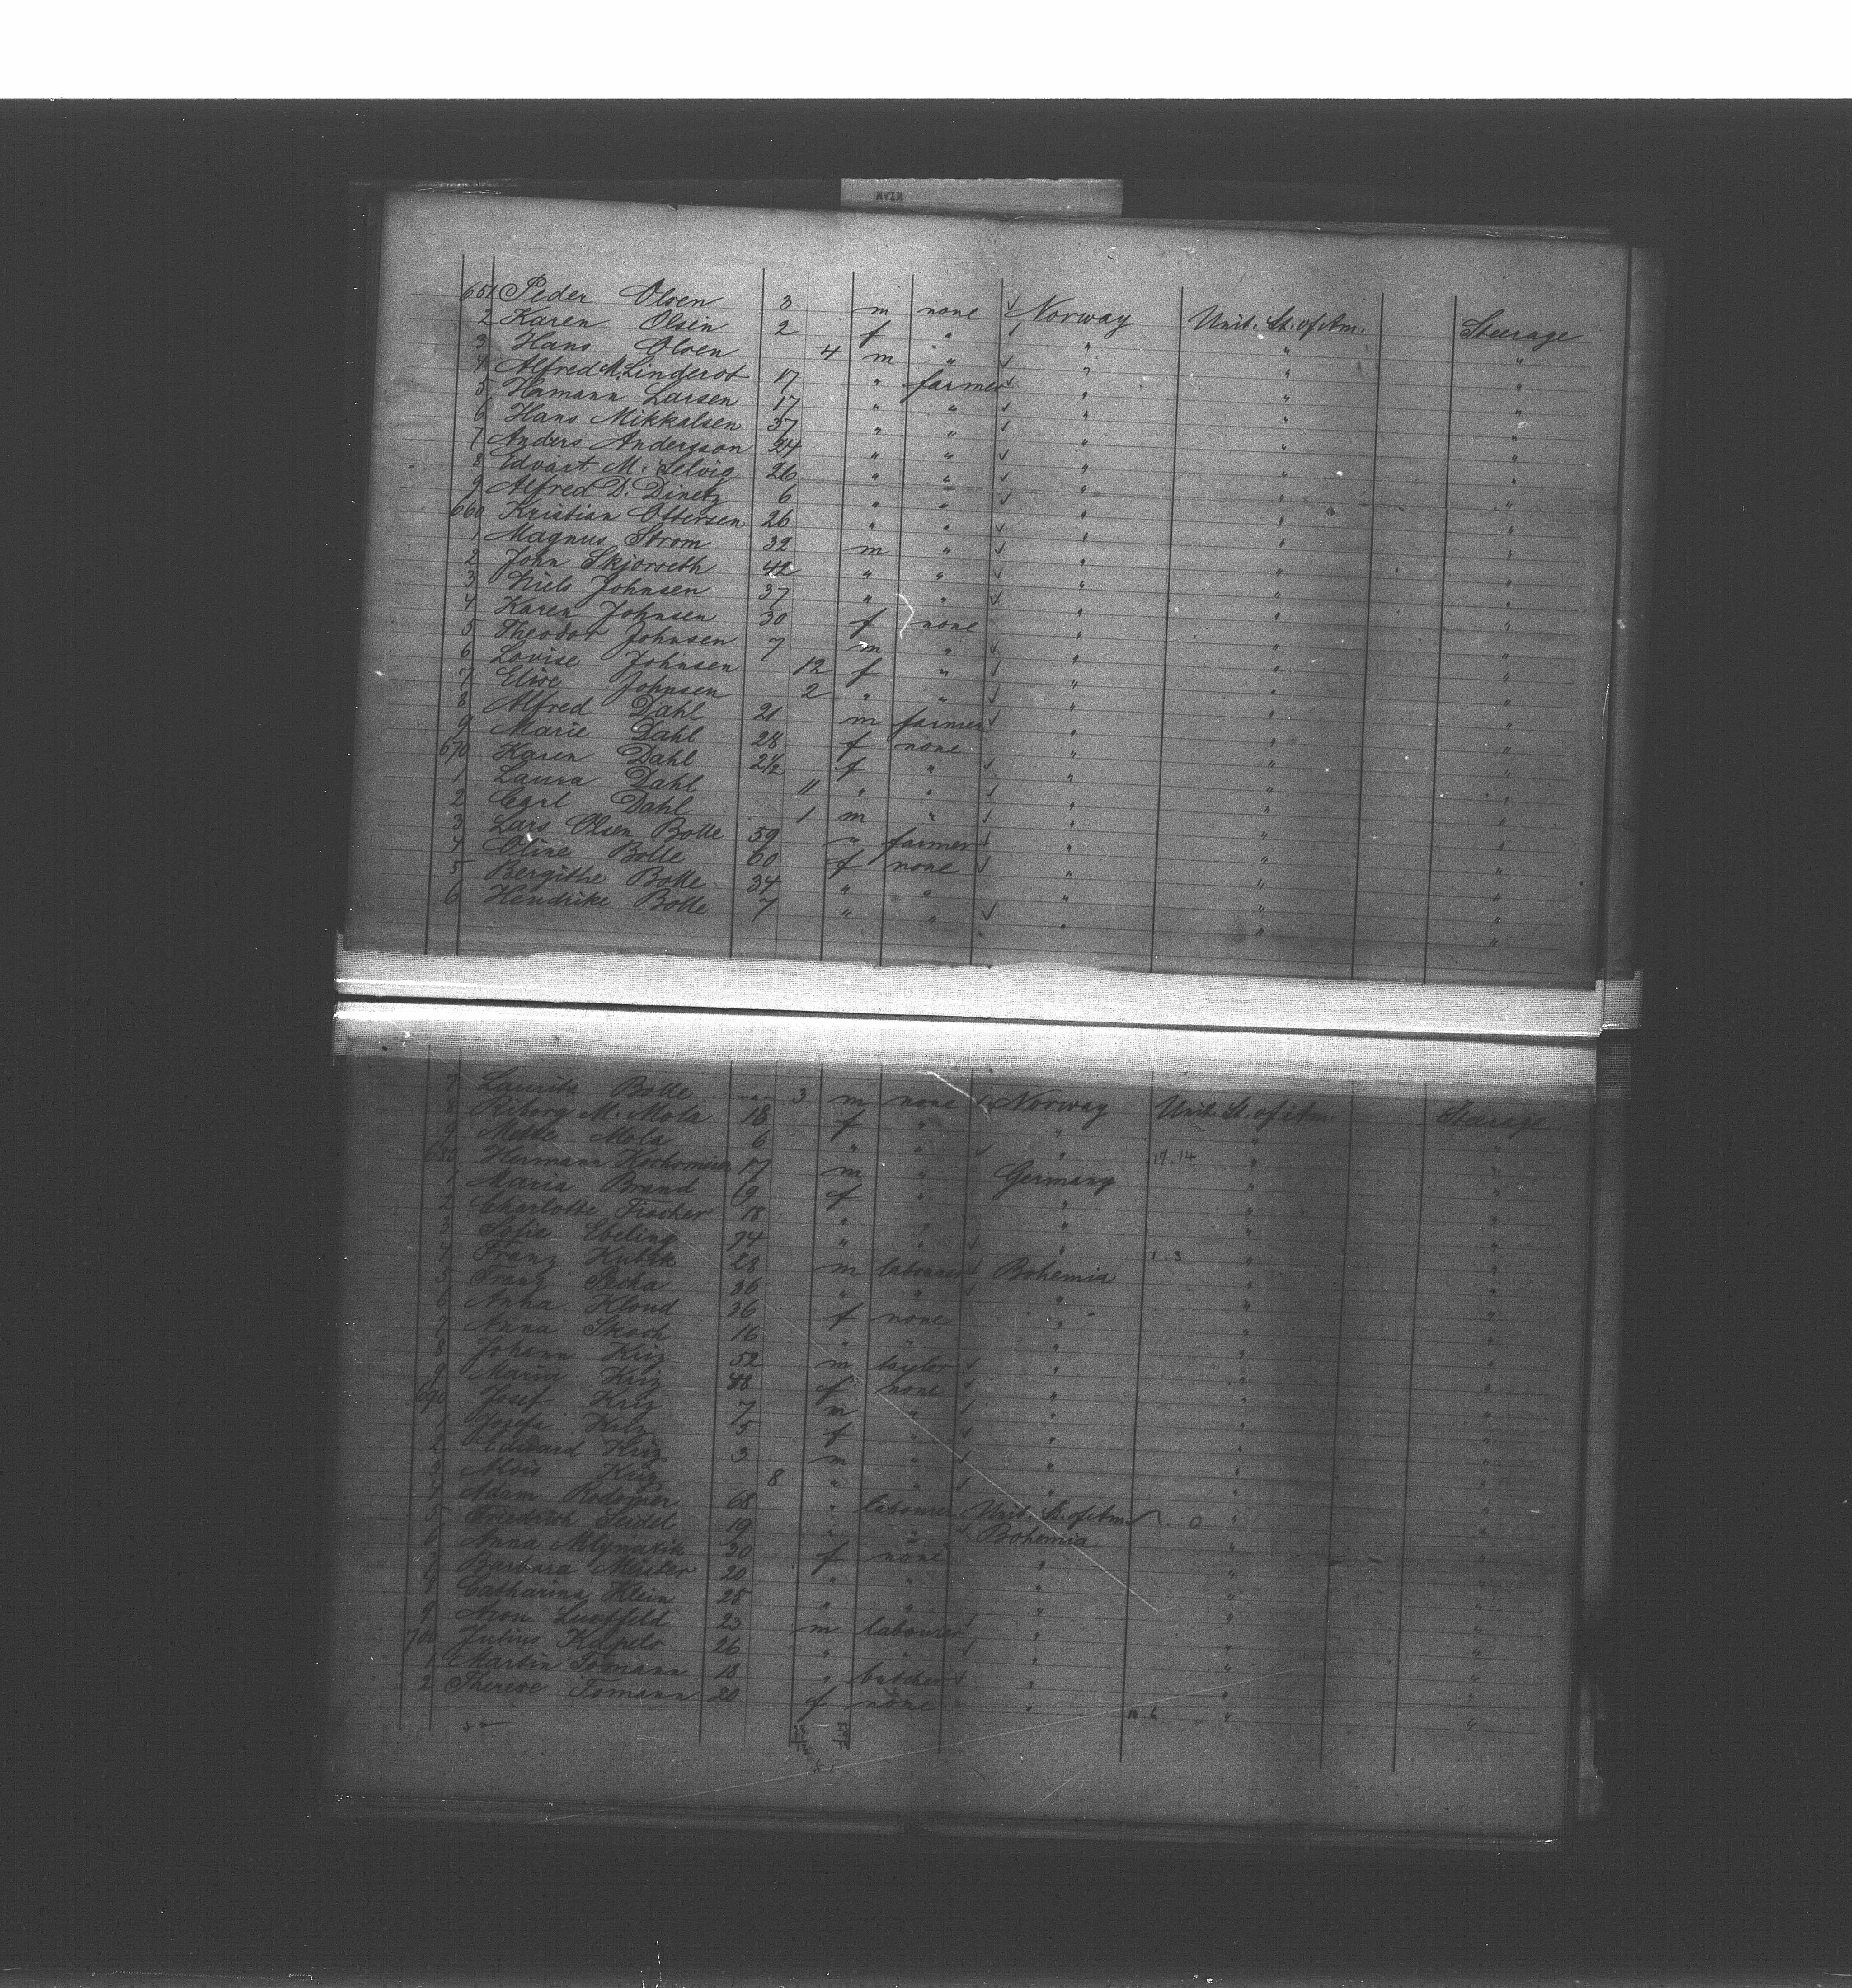 651 Peder Olsen 3 m none ✓ Norway Unit. St. of Am. Steerage
2 Karen Olsen 2 f " ✓ " " "
3 Hans Olsen 4 m " ✓ " " "
4 Alfred M. Linderot 17 " farmer ✓ " " "
5 Hamann Larsen 17 " " ✓ " " "
6 Hans Mikkalsen 37 " " ✓ " " "
7 Anders Andersson 24 " " ✓ " " "
8 Edvart M. Selvig 26 " " ✓ " " "
9 Alfred D. Dinetz 6 " " ✓ " " "
660 Kristian Ottersen 26 " " ✓ " " "
1 Magnus Strom 32 m " ✓ " " "
2 John Skjorreth 42 " " ✓ " " "
3 Niels Johnsen 37 " " ✓ " " "
4 Karen Johnsen 30 f none " " "
5 Theodor Johnsen 7 m " ✓ " " "
6 Lovise Johnsen 12 f " ✓ " " "
7 Elise Johnsen 2 " " ✓ " " "
8 Alfred Dahl 21 m farmer ✓ " " "
9 Marie Dahl 28 f none " " "
670 Karen Dahl 2½ f " ✓ " " "
1 Laura Dahl 11 " " ✓ " " "
2 Carl Dahl 1 m " ✓ " " "
3 Lars Olsen Bolle 59 " farmer ✓ " " "
4 Oline Bolle 60 f none ✓ " " "
5 Bergithe Bolle 34 " " " " "
6 Hendrike Bolle 7 " " ✓ " " "
7 Laurits Bolle 3 m none ✓ Norway Unit. St. of Am. Steerage
8 Riborg M. Mola 18 f " " " "
9 Mette Mola 6 " " ✓ " " "
680 Hermann 17 m " Germany 17.14 " "
1 Maria Brand 19 f " " " "
2 Charlotte Fischer 18 " " " " "
3 Sofie Ebeling 74 " " ✓ " " "
4 Franz Kubik 28 m labourer ✓ Bohemia 1.3 " "
5 Franz Pecka 36 " " ✓ " " "
6 Anna Kloud 36 f none " " "
7 Anna Skoch 16 " " " " "
8 Johann Kriz 52 m taylor ✓ " " "
9 Maria Kriz 48 f none ✓ " " "
690 Josef Kriz 7 m " ✓ " " "
1 Josefa Kriz 5 f " ✓ " " "
2 Eduard Kriz 3 m " ✓ " " "
3 Alois Kriz 8 " " ✓ " " "
4 Adam 68 " labourer Unit. St. of Am. " "
5 Friedrich Seidel 19 " " ✓ Bohemia " "
6 Anna Mlynarik 30 f none " " "
7 Barbara Meister 20 " " " " "
8 Catharina Klein 25 " " " " "
9 Aron 23 m labourer ✓ " " "
700 Julius Kapelo 26 " " ✓ " " "
1 Martin Tomann 18 " butcher ✓ " " "
2 Therese Tomann 20 f none " 10.6 " "